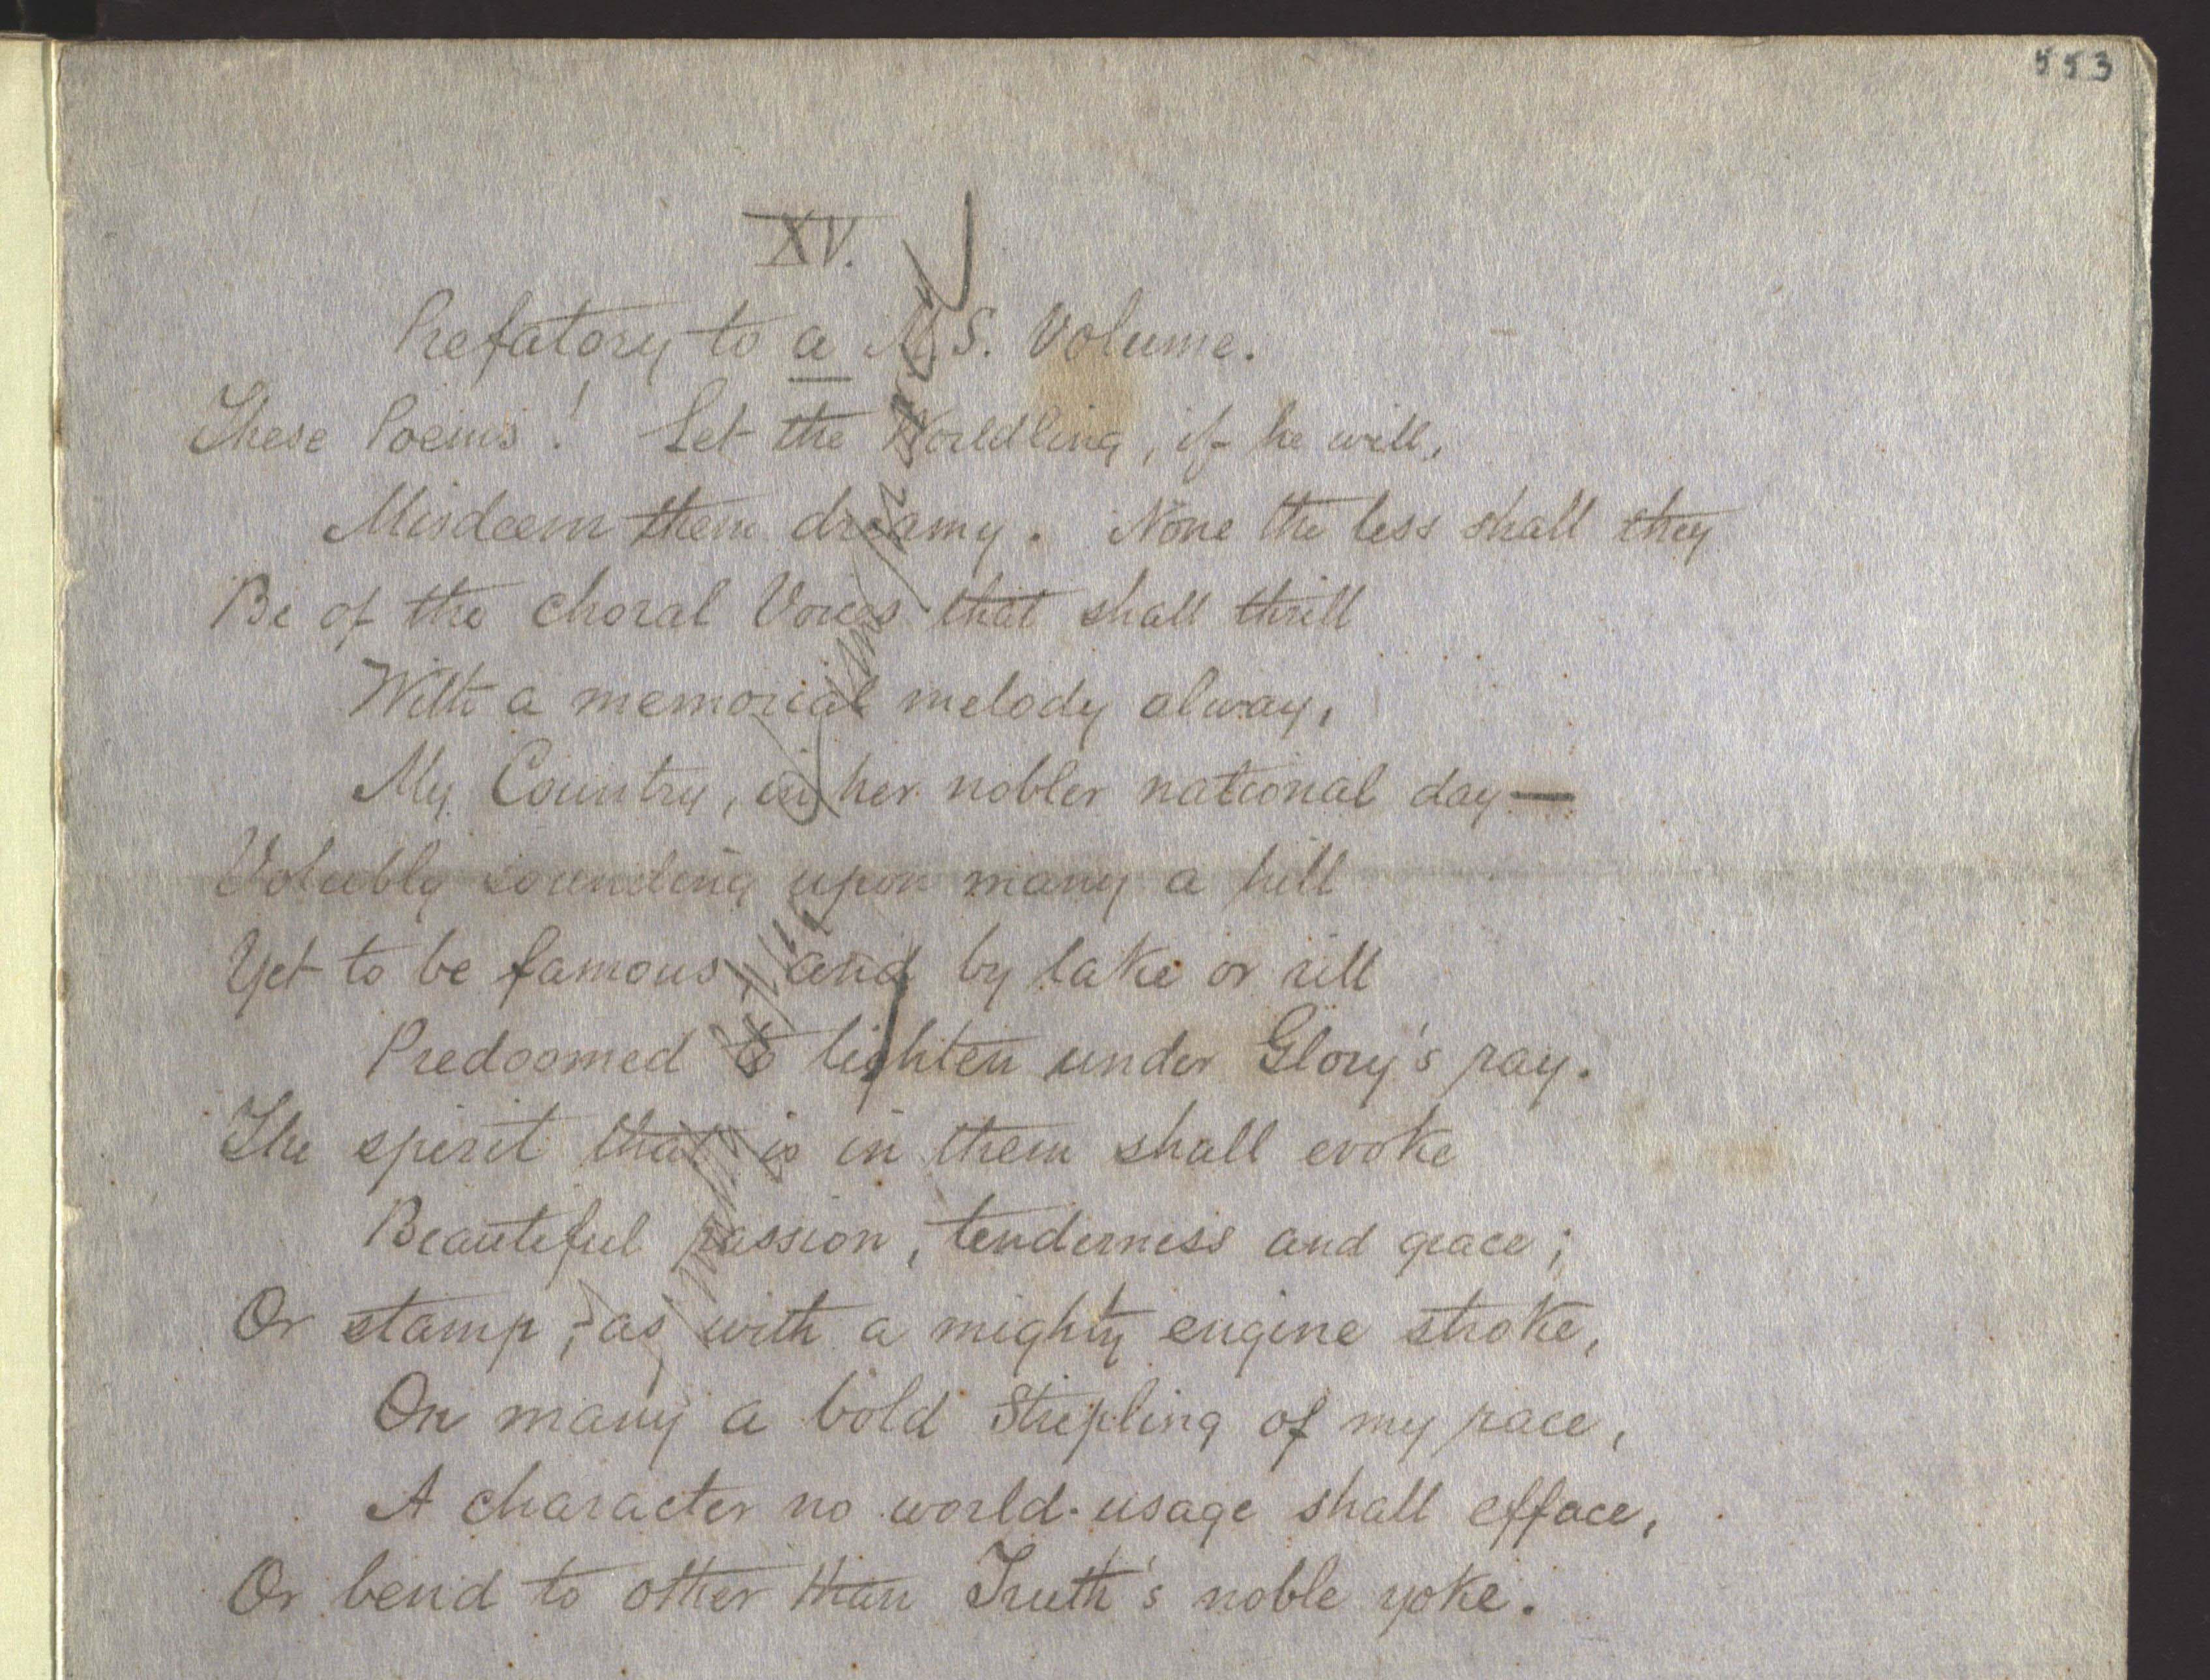 553
XV.
Prefatory to a M.S. Volume.
These Poems! Let the Worldling, if he will,
Misdeem them dreamy. None the less shall they
Be of the choral Voices that shall thrill
With a memorial melody alway,
My Country, in her nobler national day—
Volubly sounding upon many a hill
Yet to be famous, and by lake or rill
Predoomed to lighten under Glory's ray.
The spirit that is in them shall evoke
Beautiful passion, tenderness and grace;
Or stamp, as with a mighty engine stroke,
On many a bold Stripling of my race,
A character no world-usage shall efface,
Or bend to other than Truth's noble yoke.